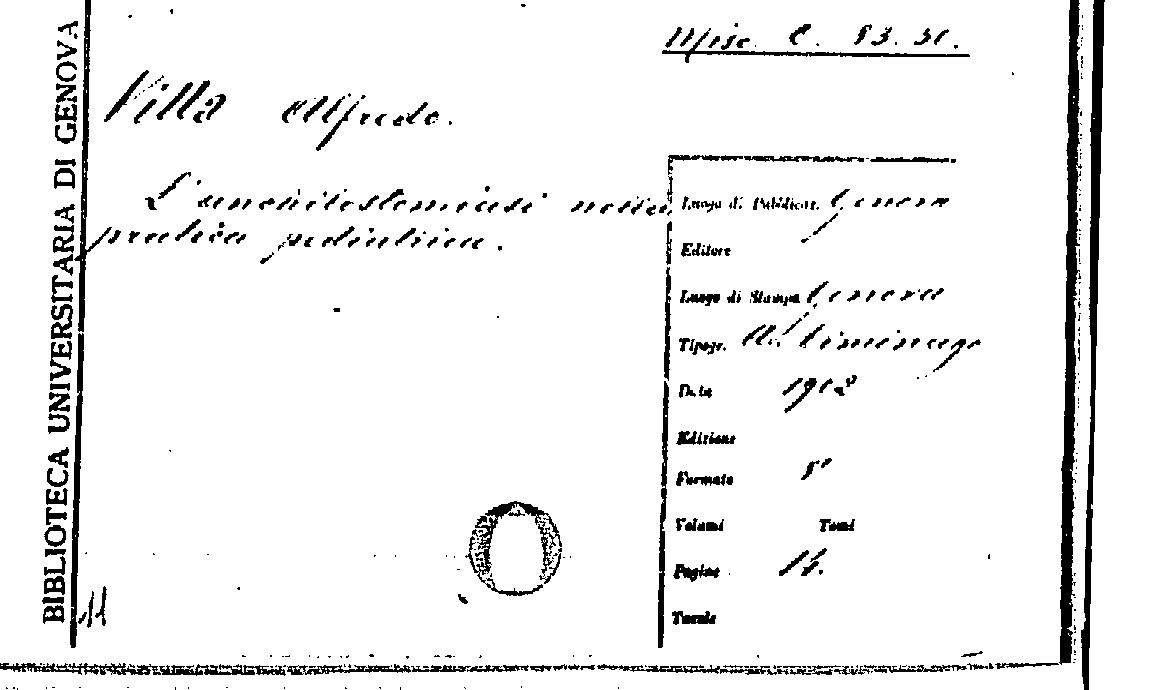 BIBLIOTECA UNIVERSITARIA DI GENOVA
Misc. C. 83. 31.
Villa Alfredo.
L'anchilostomiasi nella
pratica pediatrica.
Luogo di Pubblicaz. Genova
Editore
Luogo di Stampa Genova
Tipogr.
Data 1912
Edizione
Formato 8°
Volumi Tomi
Pagine
Tavole
11